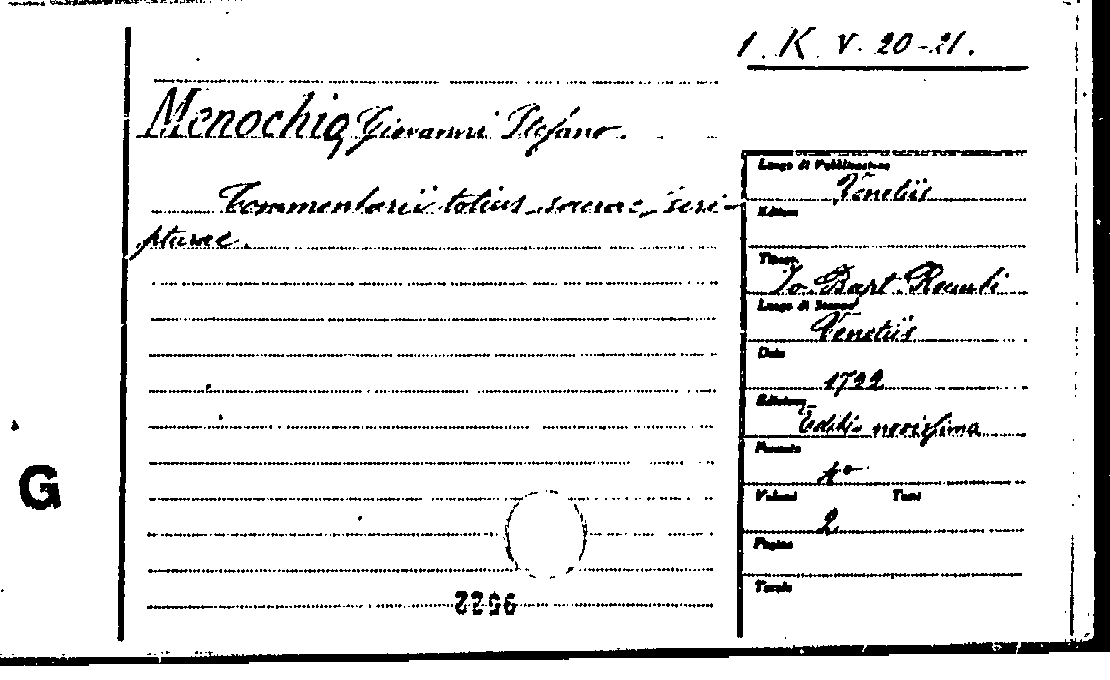 1. K. V. 20-21.
Menochio, Giovanni Stefano.
Commentarii totius sacrae scri-
pturae.
Luogo di Pubblicazione
Venetiis
Editore
Tipogr.
Jo. Bapt. Recurti
Luogo di Stampa
Venetiis
Data
1722
Edizione
Editio novissima
Formato
4°
Volumi Tomi
2
Pagine
Tavole
G
9522